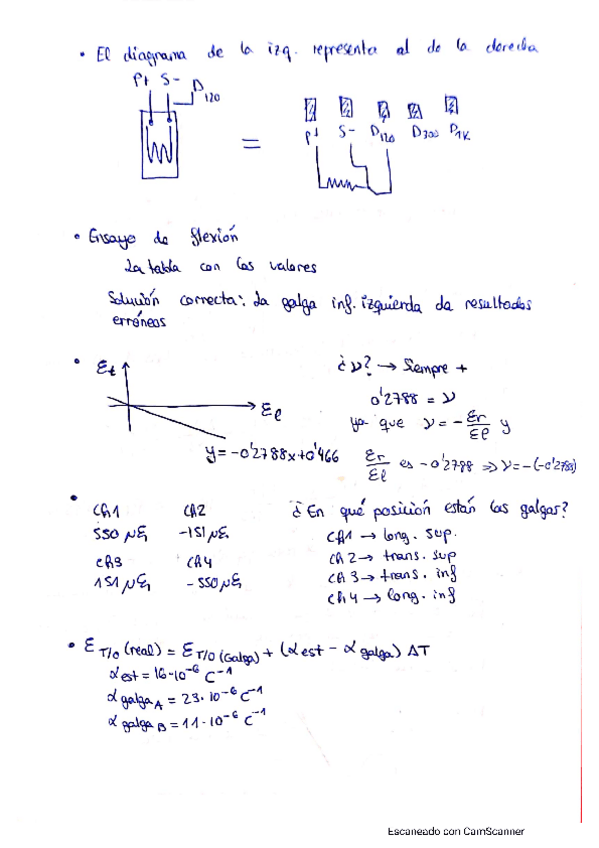 • El diagrama de la izq. representa al de la derecha
P+ S- D120
=
P+ S- D120 D300 D1K
• Ensayo de flexión
La tabla con los valores
Solución correcta: La galga inf. izquierda da resultados
erróneos
• Et
El
y = -0'2788x+0'466
¿ν? → Siempre +
0'2788 = ν
ya que ν = - Er/El y
Er/El es -0'2788 ⇒ ν = -(-0'2788)
• CA1 CA2
550 με -151 με
CA3 CA4
151 με -550 με
¿En qué posición están las galgas?
CA1 → long. sup.
CA2 → trans. sup
CA3 → trans. inf
CA4 → long. inf
• ε T/O (real) = ε T/O (Galga) + (α est - α galga) ΔT
α est = 16·10⁻⁶ C⁻¹
α galga A = 23·10⁻⁶ C⁻¹
α galga B = 11·10⁻⁶ C⁻¹
Escaneado con CamScanner